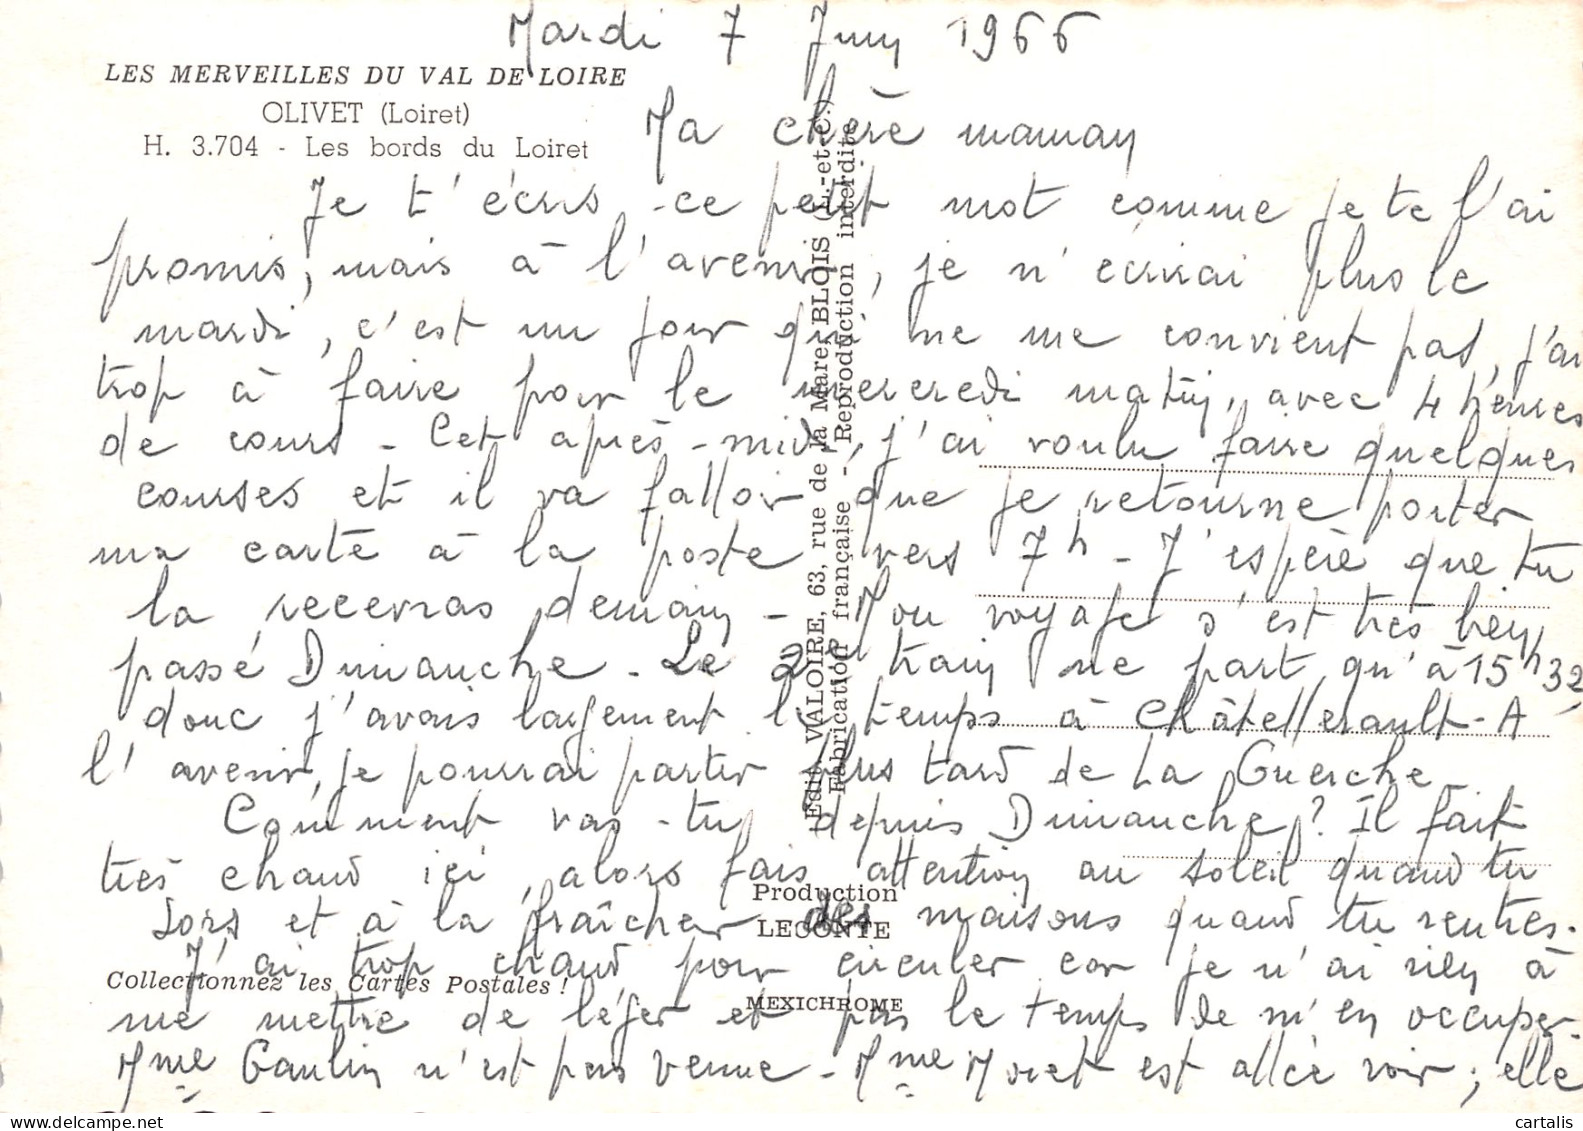 Mardi 7 Juin 1966
LES MERVEILLES DU VAL DE LOIRE
OLIVET (Loiret)
H. 3.704 - Les bords du Loiret
Ma chère maman
Je t'écris ce petit mot comme je te l'ai
promis, mais à l'avenir, je n'écrirai plus le
mardi, c'est un jour qui ne me convient pas, j'ai
trop à faire pour le mercredi matin, avec 4 heures
de cours - Cet après-midi, j'ai voulu faire quelques
courses et il va falloir que je retourne porter
ma carte à la poste vers 7h - J'espère que tu
la recevras demain - Mon voyage s'est très bien
passé Dimanche - Le 2e train ne part qu'à 15h32,
donc j'avais largement le temps à Châtellerault - A
l'avenir, je pourrai partir plus tard de La Guerche
Comment vas-tu depuis Dimanche ? Il fait
très chaud ici, alors fais attention au soleil quand tu
sors et à la fraîcheur des maisons quand tu rentres.
J'ai trop chaud pour circuler car je n'ai rien à
me mettre de léger et pas le temps de m'en occuper.
Mme Gaulin n'est pas venue - Mme Moret est allée voir ; elle
Edit. VALOIRE, 63, rue de la Mare, BLOIS (L.-et-C.)
Fabrication française - Reproduction interdite
Production
LECONTE
Collectionnez les Cartes Postales !
MEXICHROME
cartalis